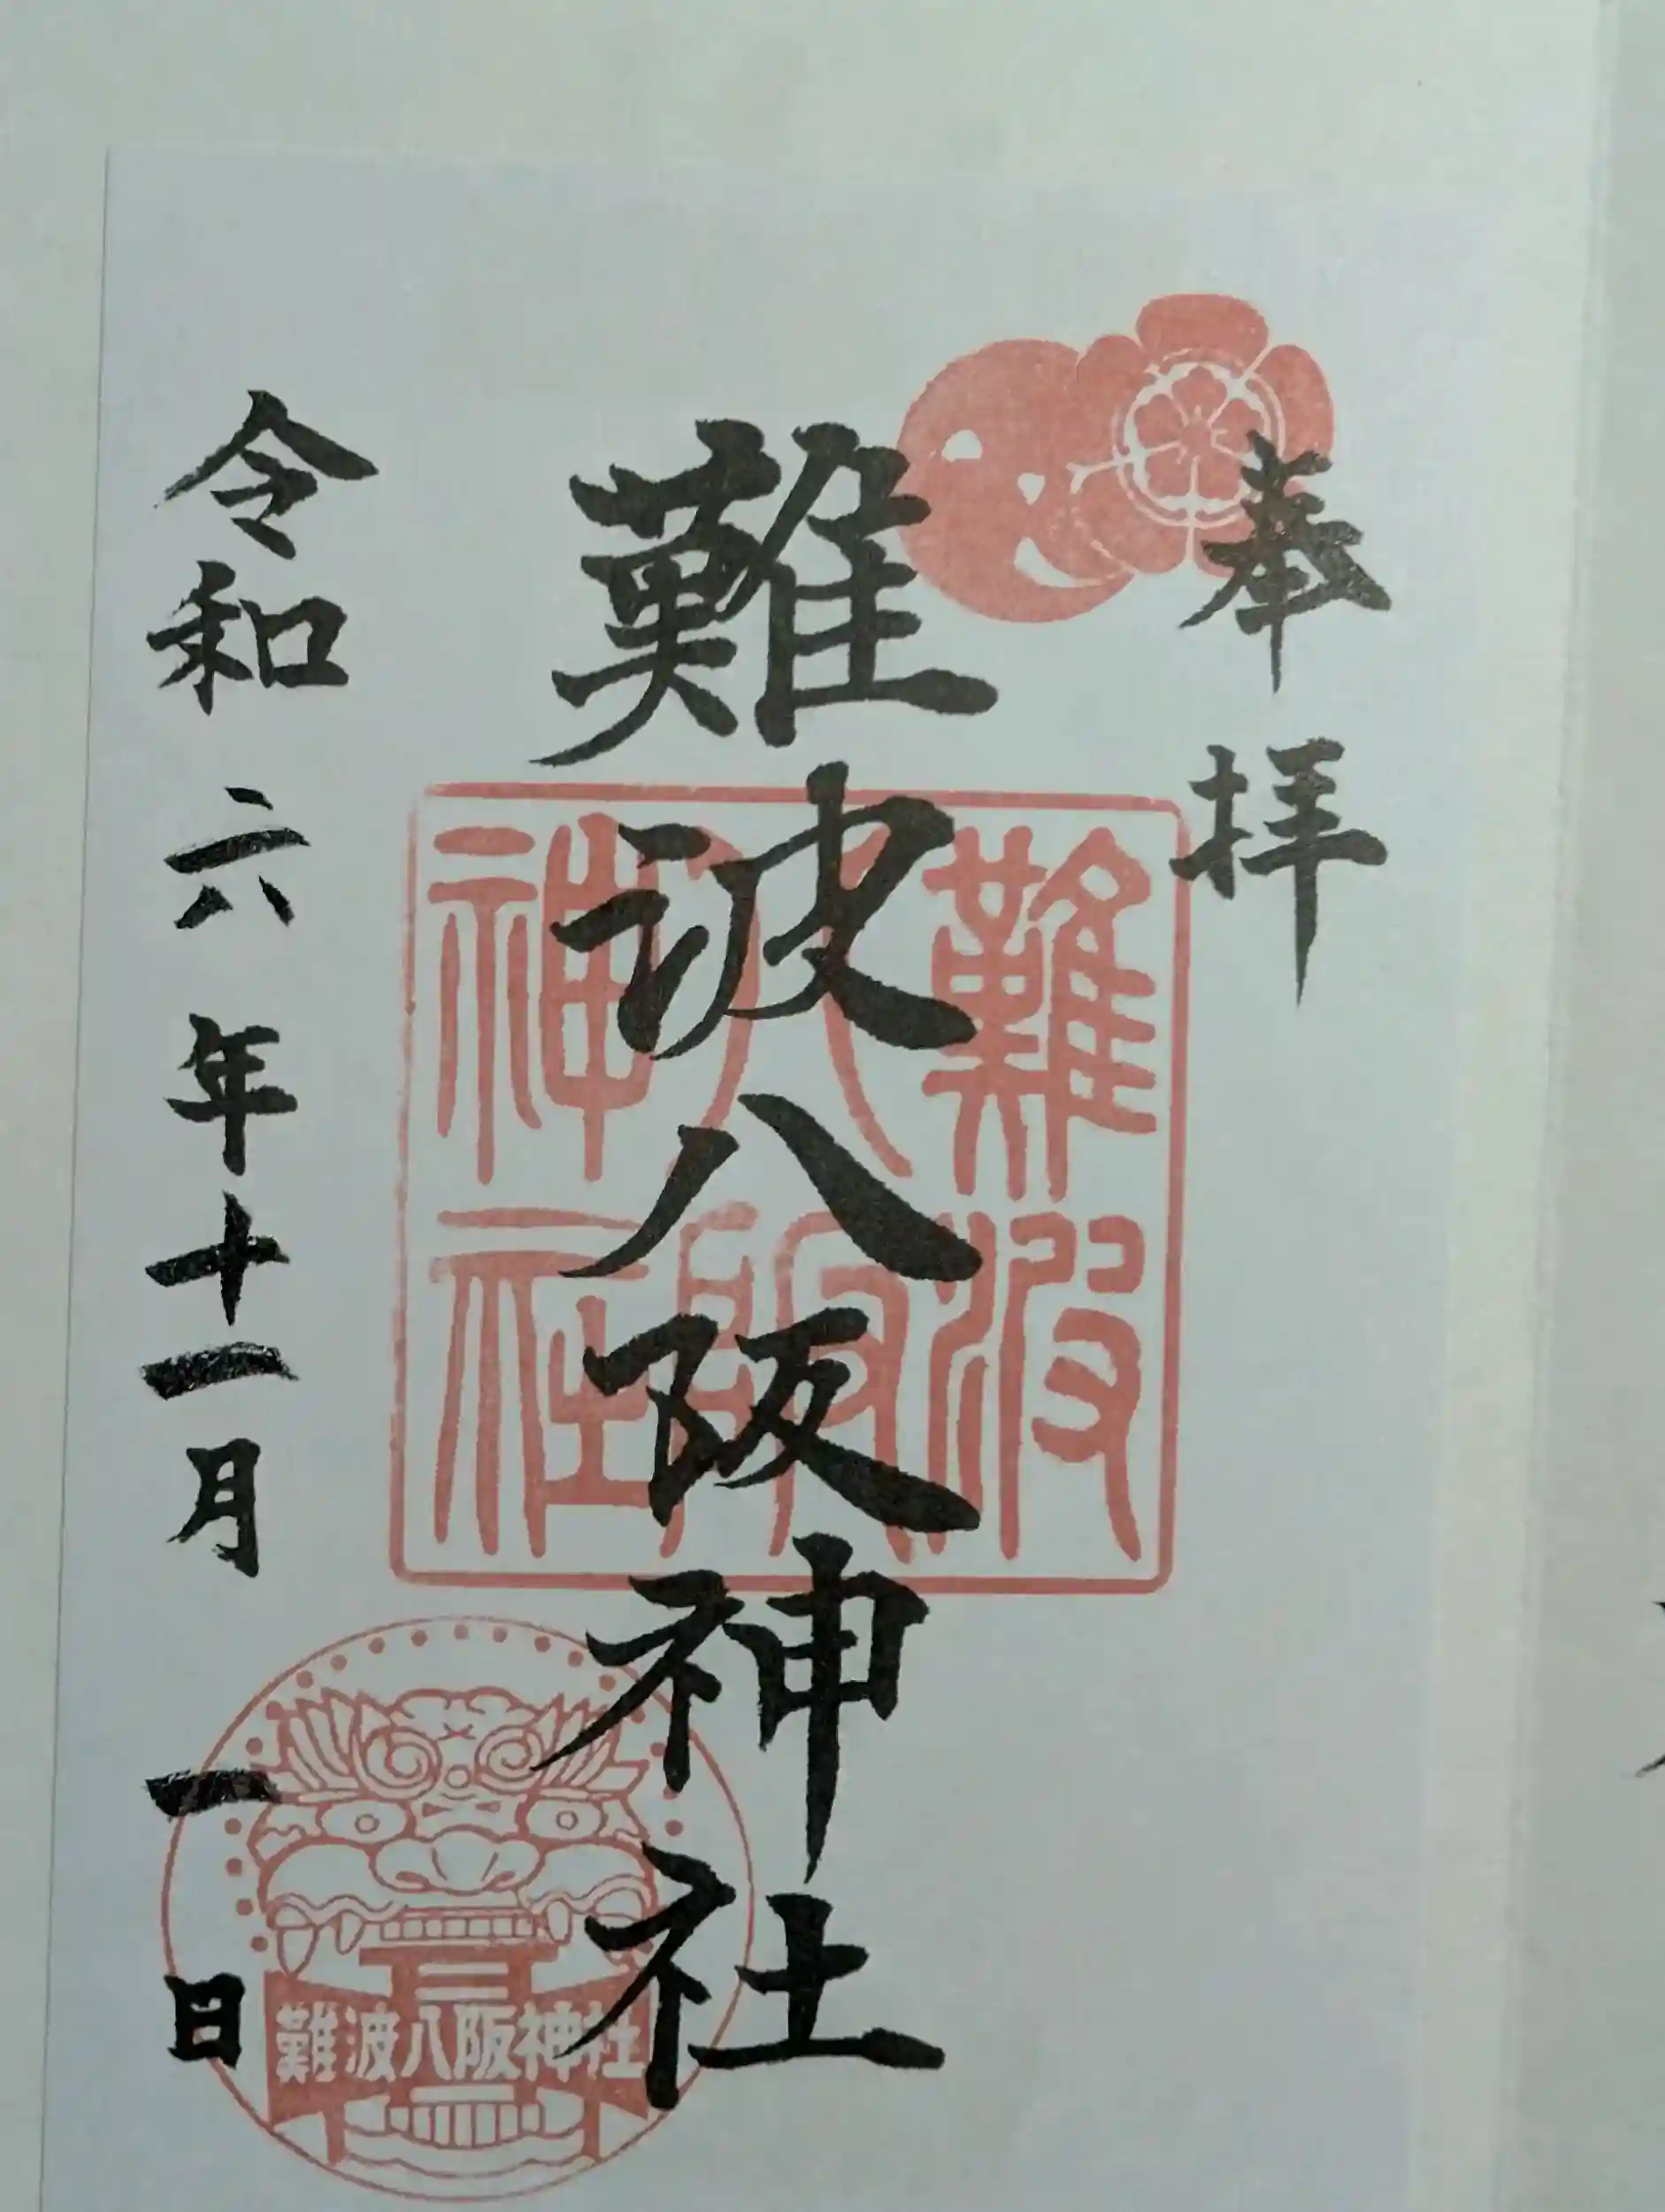 奉拝
難波八阪神社
令和六年十一月一日
難波八阪神社
難波八阪神社